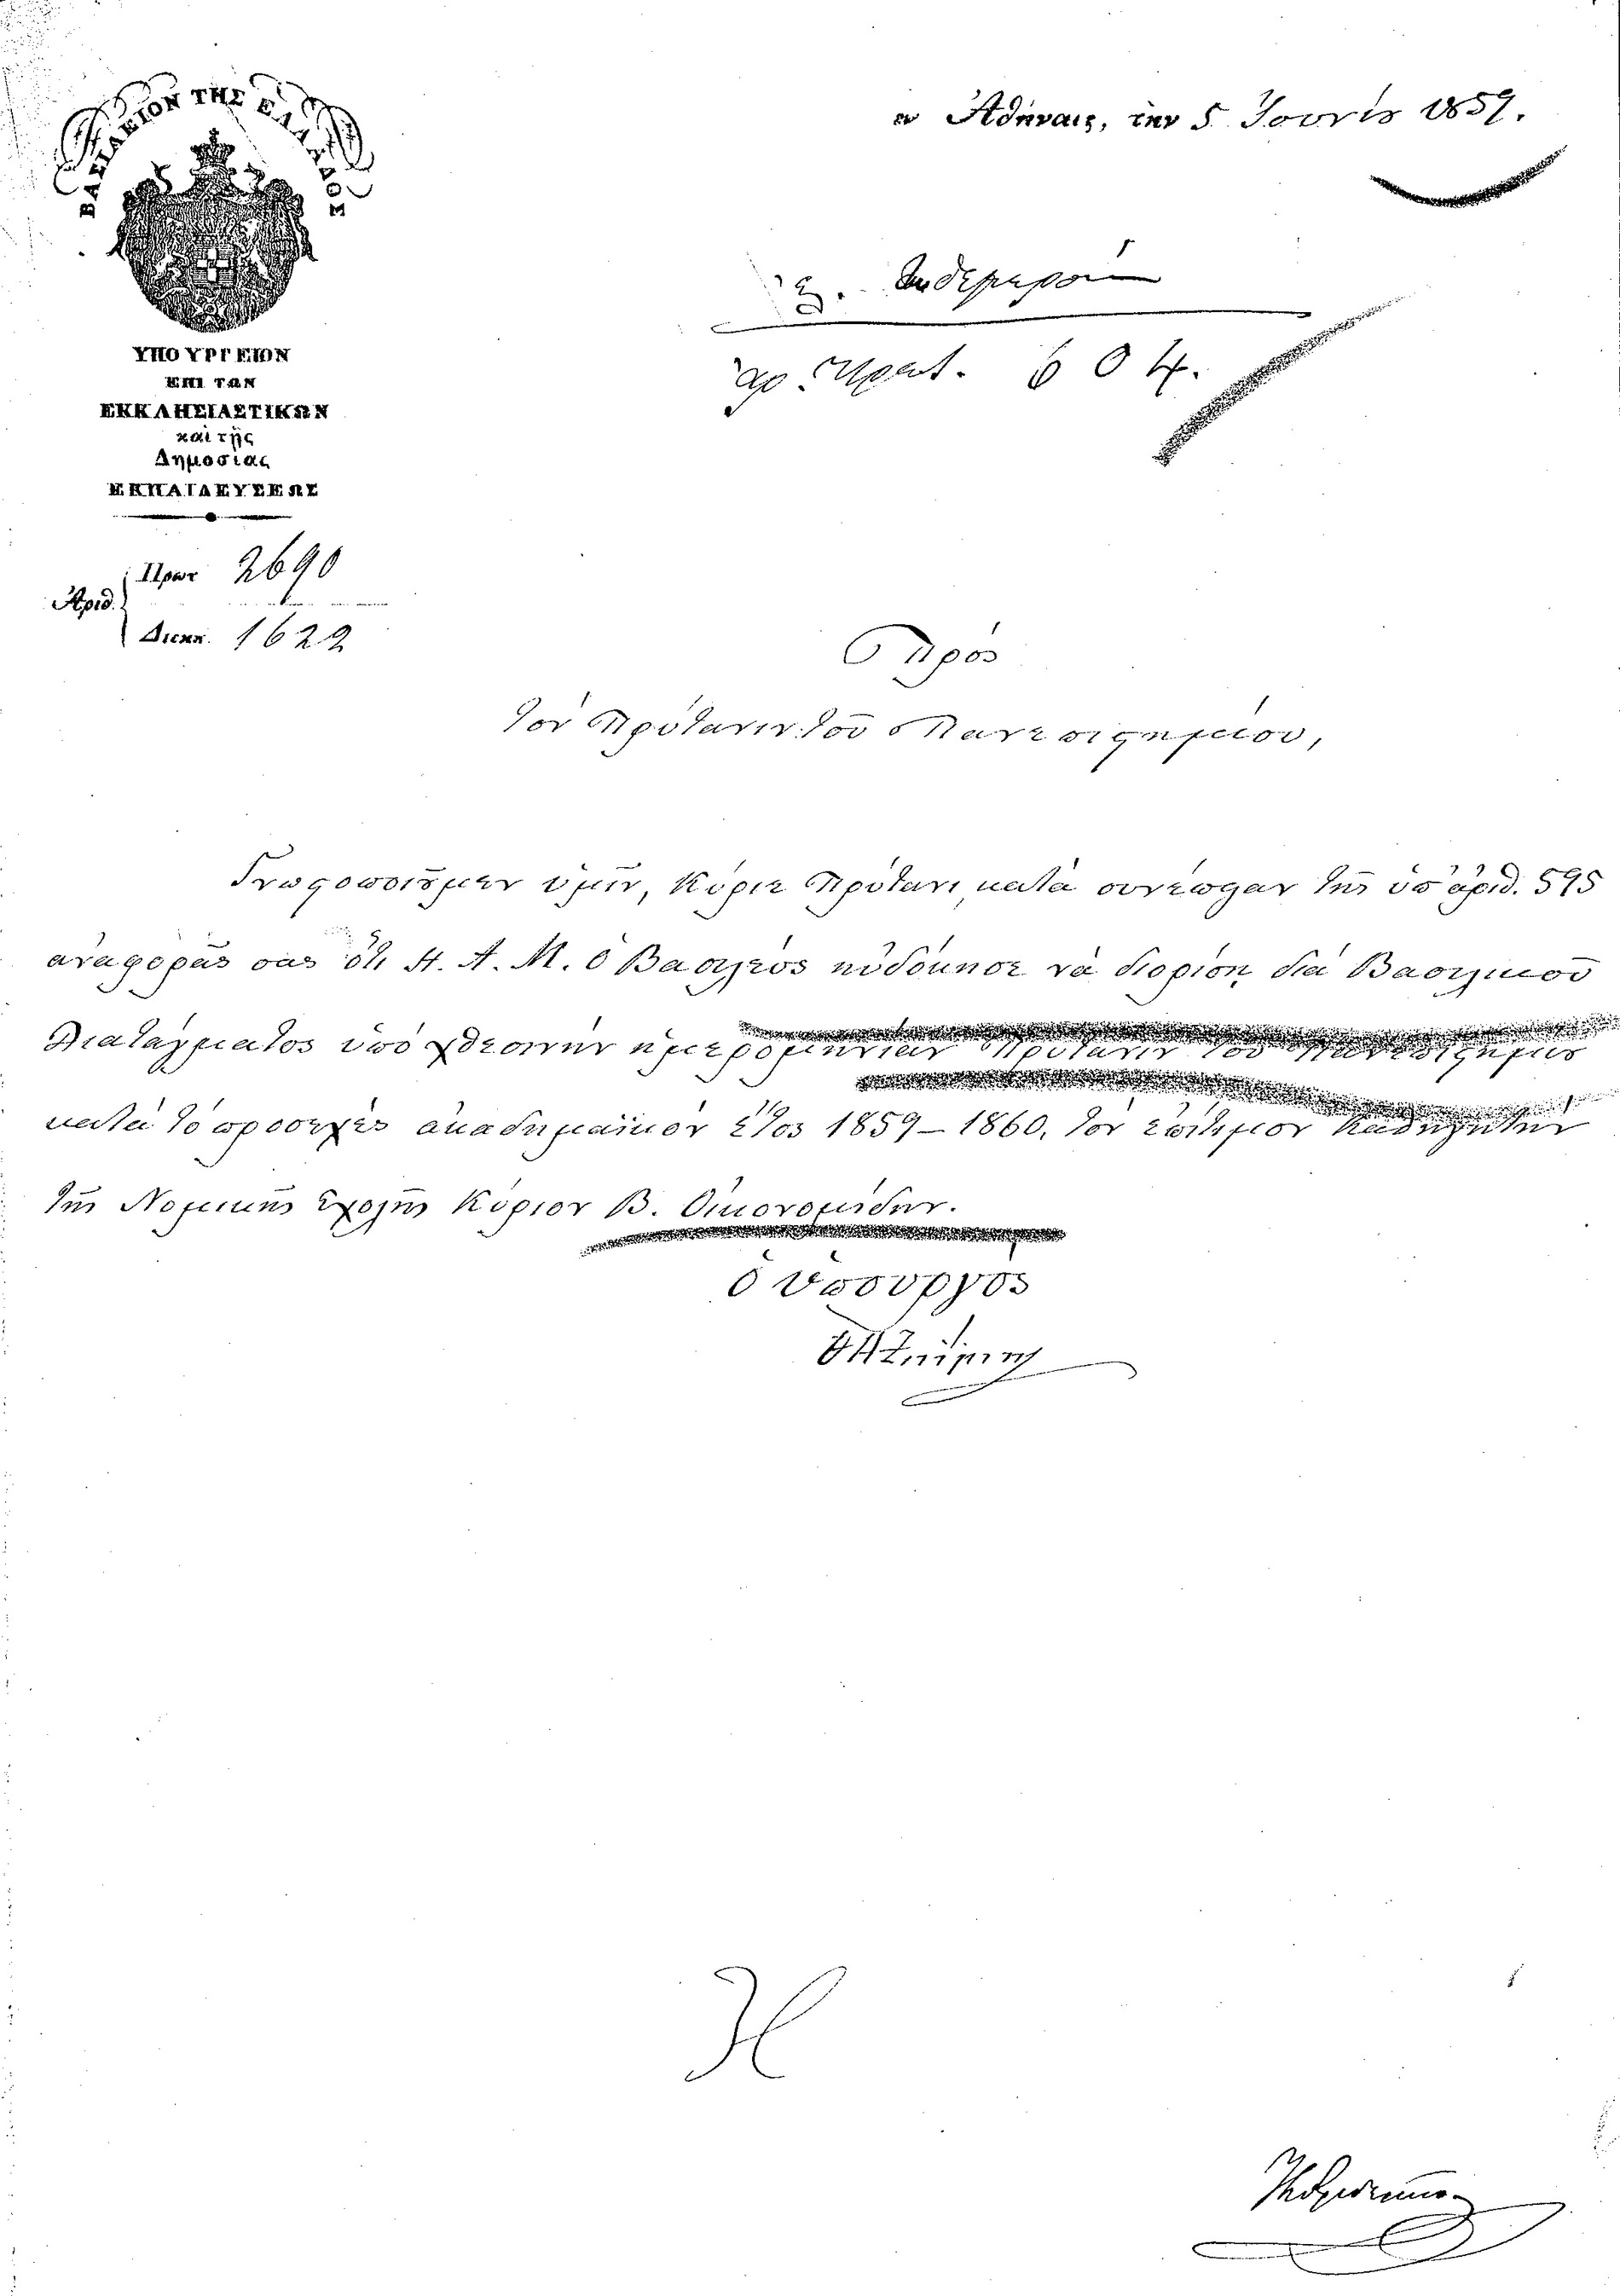 ΒΑΣΙΛΕΙΟΝ ΤΗΣ ΕΛΛΑΔΟΣ
ΥΠΟΥΡΓΕΙΟΝ
ΕΠΙ ΤΩΝ
ΕΚΚΛΗΣΙΑΣΤΙΚΩΝ
καὶ τῆς
Δημοσίας
ΕΚΠΑΙΔΕΥΣΕΩΣ
Ἀριθ.
Πρωτ 2690
Διεκπ. 1622
ἐν Ἀθήναις, τὴν 5 Ἰουνίου 1859.
ἀρ. Πρωτ. 604.
Πρὸς
τὸν Πρύτανιν τοῦ Πανεπιστημίου,
Γνωστοποιοῦμεν ὑμῖν, Κύριε Πρύτανι, κατὰ συνέπειαν τῆς ὑπ' ἀριθ. 595
ἀναφορᾶς σας ὅτι Η. Α. Μ. ὁ Βασιλεὺς ηὐδόκησε νὰ διορίσῃ διὰ Βασιλικοῦ
Διατάγματος ὑπὸ χθεσινὴν ἡμερομηνίαν Πρύτανιν τοῦ Πανεπιστημίου
κατὰ τὸ προσεχὲς ἀκαδημαϊκὸν ἔτος 1859–1860, τὸν ἐπίτιμον καθηγητὴν
τῆς Νομικῆς Σχολῆς Κύριον Β. Οἰκονομίδην.
Ὁ Ὑπουργὸς